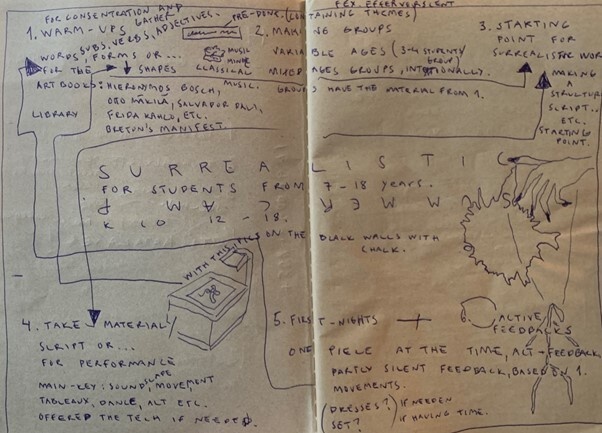 FOR CONSENTRATION AND
1. WARM-UPS GATHER
SUBS. VERBS, ADJECTIVES.
WORDS, FORMS OR ...
FOR THE SHAPES
ART BOOKS: HIERONYMOS BOSCH,
OTO MÄKILÄ, SALVADOR DALI,
FRIDA KAHLO, ETC.
BRETON'S MANIFEST.
LIBRARY
MUSIC
CLASSICAL
MUSIC.
PRE-DONE.
TAINING THEMES)
2. MAKING GROUPS
VARIABLE AGES (3-4 STUDENTS/
GROUP)
MIXED AGES GROUPS, INTENTIONALLY.
GROUPS HAVE THE MATERIAL FROM 1.
3. STARTING
POINT FOR
SURREALIST WORK
MAKING
A
STRUCTURE
SCRIPT..
ETC.
STARTING
POINT.
SURREALISTIC
FOR STUDENTS FROM 7-18 YEARS.
KLO 12-18.
PICS ON THE BLACK WALLS WITH
CHALK.
WITH THIS
4. TAKE MATERIAL/
SCRIPT OR ...
FOR PERFORMANCE
MAIN-KEY: SOUNDSCAPE, MOVEMENT
TABLEAUX, DANCE, ALT ETC.
OFFERED THE TECH IF NEEDED.
5. FIRST-NIGHTS + ACTIVE
FEEDBACKS
ONE PIECE AT THE TIME, ALT-FEEDBACK
PARTLY SILENT FEEDBACK, BASED ON 1.
MOVEMENTS.
(DRESSES?) IF NEEDEN
SET? IF HAVING TIME.